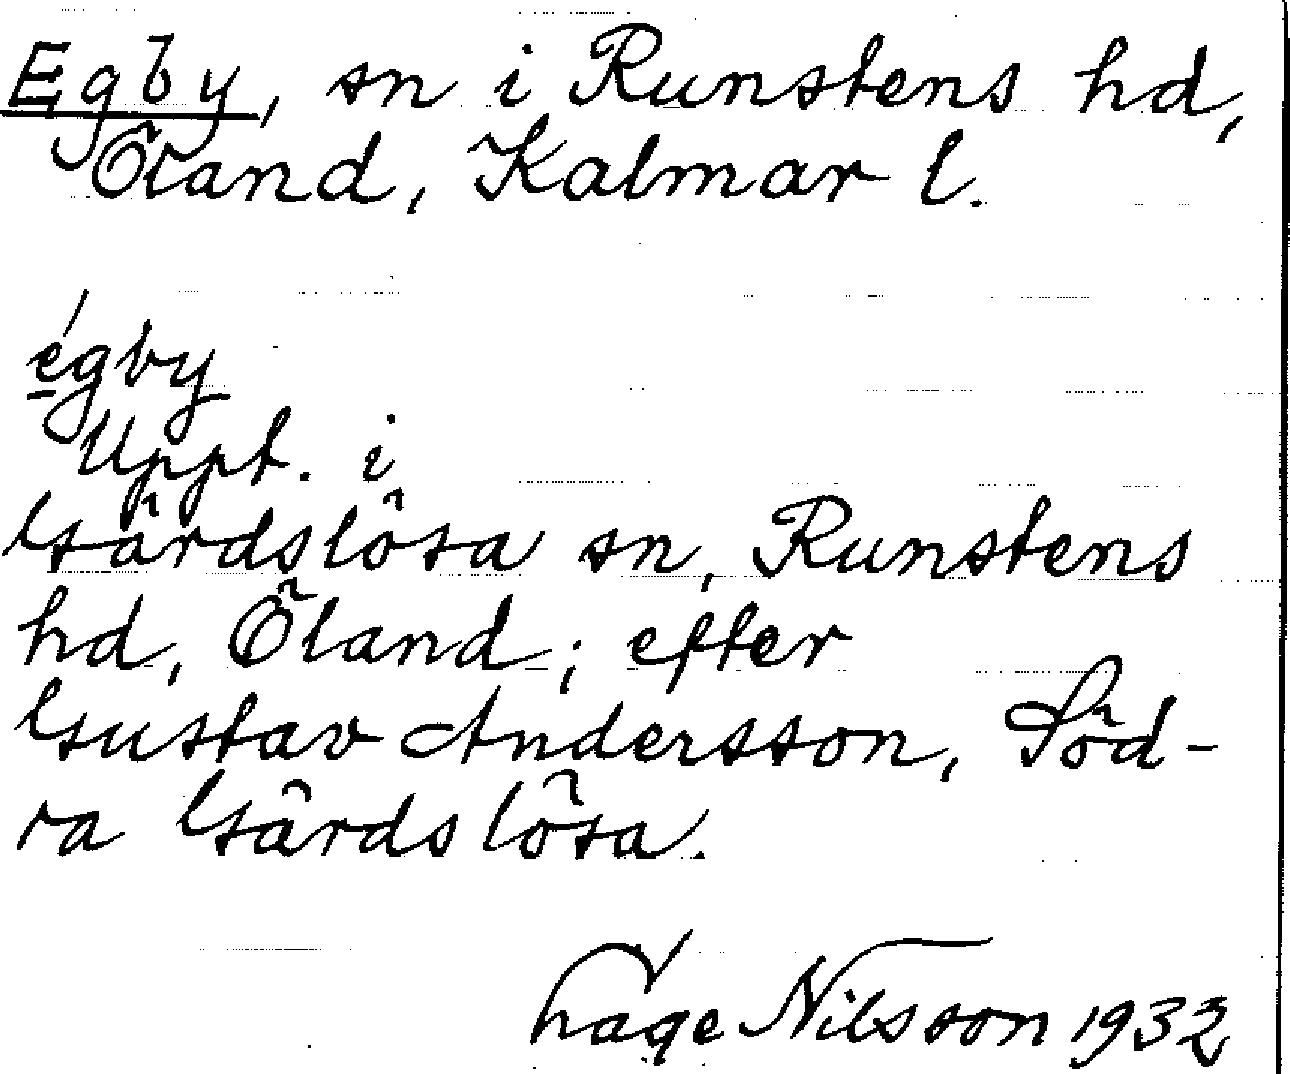 Egby, sn i Runstens hd,
Öland, Kalmar l.
é̱gby
Uppt. i
Gärdslösa sn, Runstens
hd, Öland; efter
Gustav Andersson, Söd-
ra Gärdslösa.
Hage Nilsson 1932